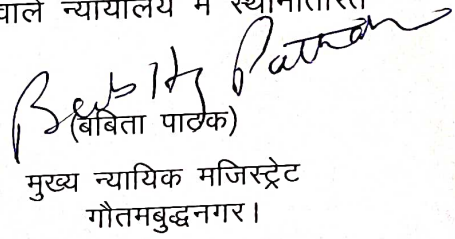 वाले न्यायालय में स्थानांतरित
Babita Pathak
(बबिता पाठक)
मुख्य न्यायिक मजिस्ट्रेट
गौतमबुद्धनगर।